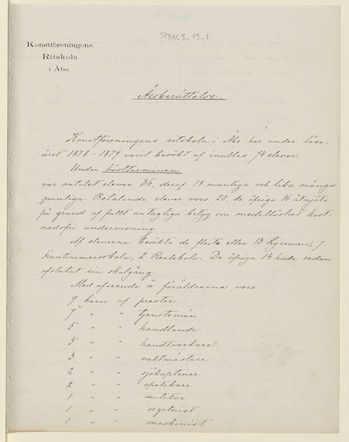 Konstföreningens
Ritskola
i Åbo.
Årsberättelse.
Konstföreningens ritskola i Åbo har under läse-
året 1878-1879 varit besökt af inalles 74 elever
Under höstterminen
var antalet elever 36, deraf 18 manliga och lika många
qvinliga. Betalande elever voro 20, de öfriga 16 åtnjöto
på grund af fullt antagliga betyg om medellöshet kost-
nadsfri undervisning.
Af eleverna besökte de flesta eller 13 Lyceum, 7
Fruntimmersskola, 2 Realskola. De öfriga 14 hade redan
afslutat sin skolgång.
Med afseende å föräldrarna voro
9 barn af prester
7 " " tjenstemän
5 " " handlande
5 " " handtverkare
3 " " vaktmästare
2 " " sjökaptener
2 " " apotekare
1 " " militär
1 " " orgelnist
1 " " maskinist